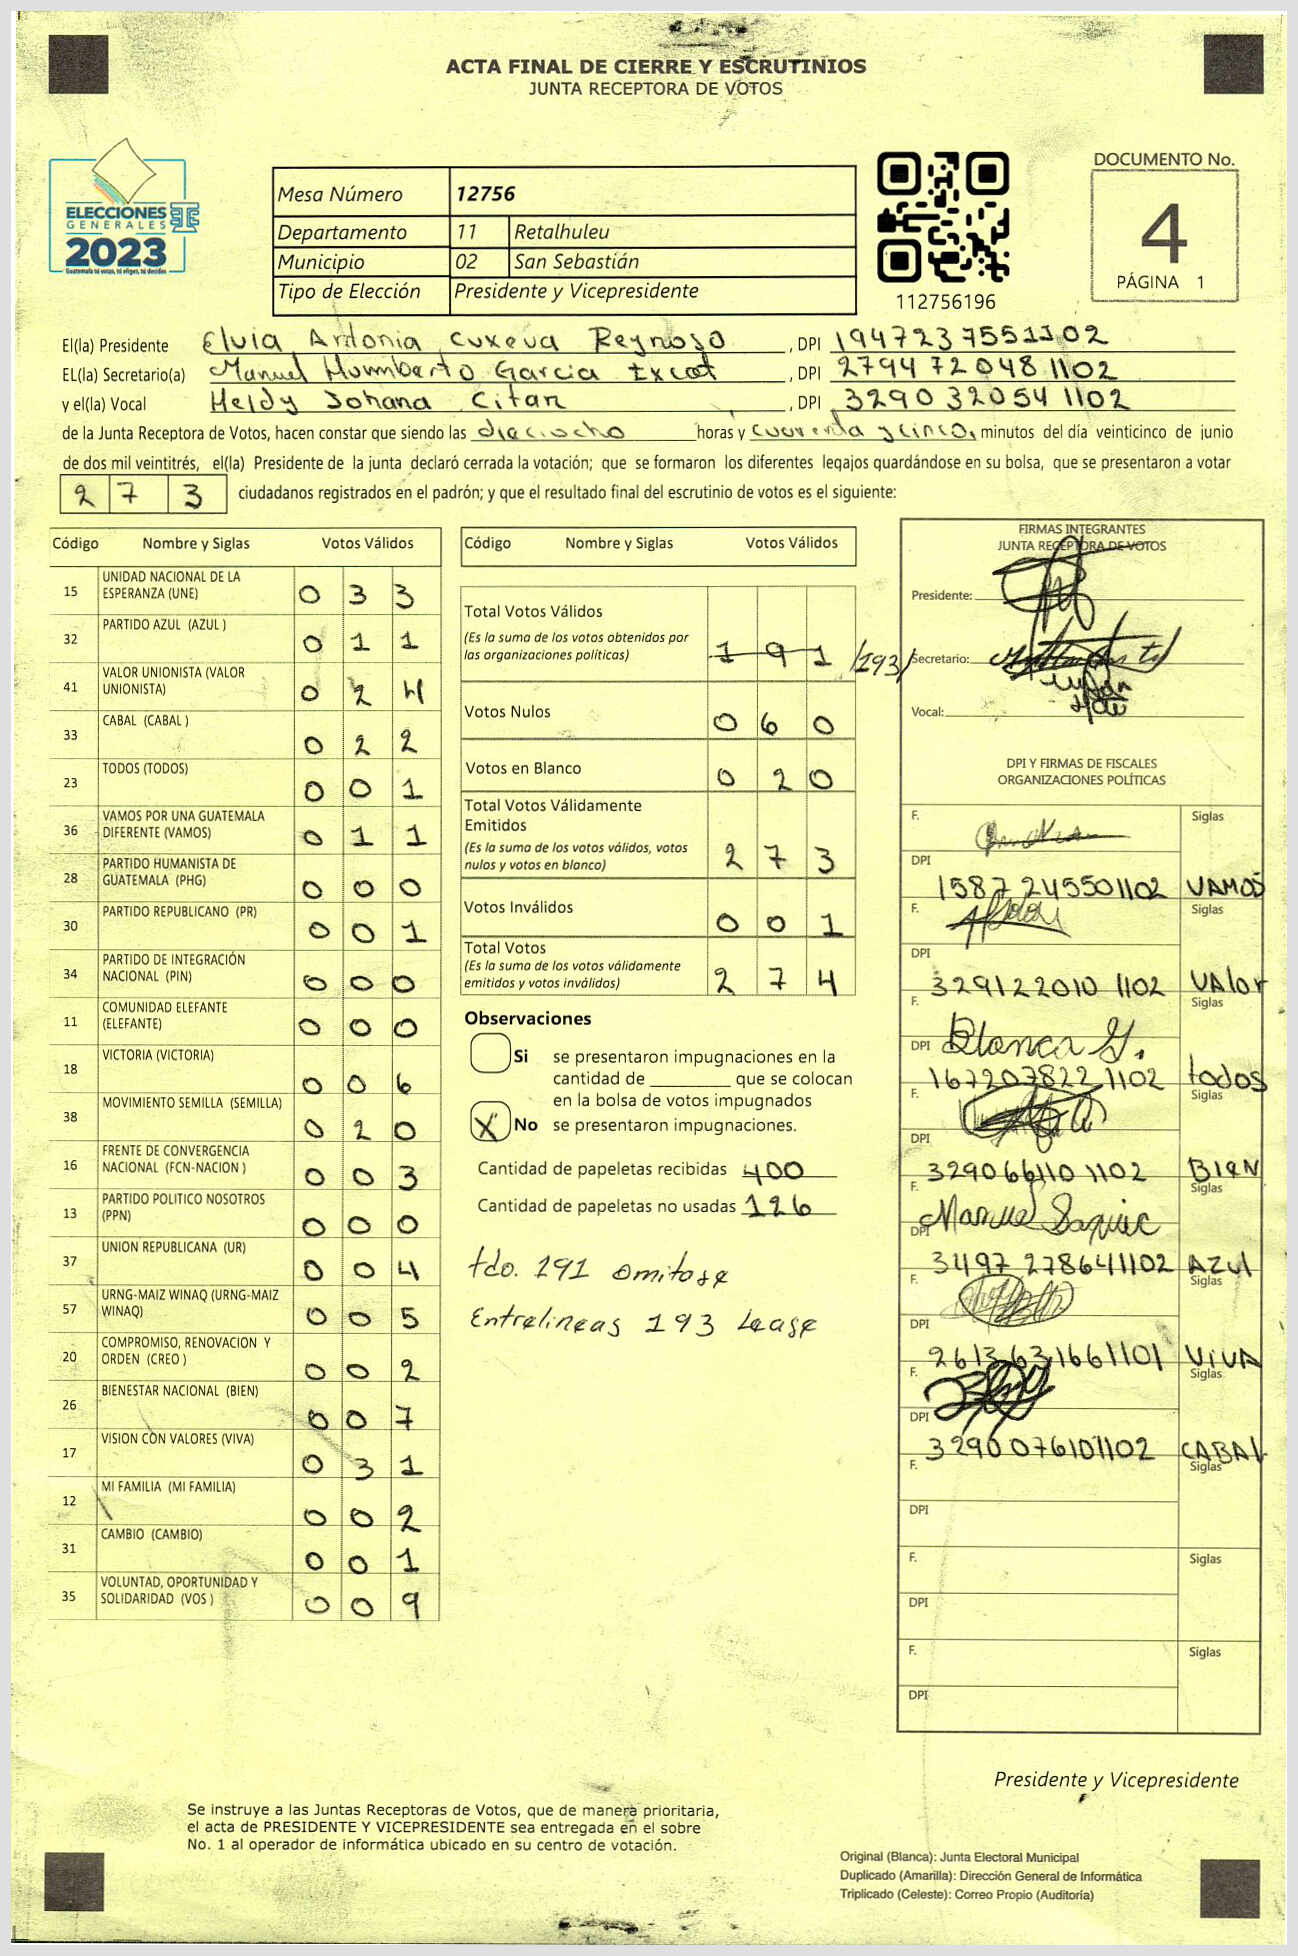 ACTA FINAL DE CIERRE Y ESCRUTINIOS
JUNTA RECEPTORA DE VOTOS
ELECCIONES
GENERALES
2023
Guatemala tú votas, tú eliges, tú decides
Mesa Número 12756
Departamento 11 Retalhuleu
Municipio 02 San Sebastián
Tipo de Elección Presidente y Vicepresidente
112756196
DOCUMENTO No.
4
PÁGINA 1
El(la) Presidente Elvia Antonia Cuxeva Reynoso, DPI 1947237551102
EL(la) Secretario(a) Manuel Hummberto Garcia Ixcot, DPI 2794720481102
y el(la) Vocal Heldy Johana Citan, DPI 3290320541102
de la Junta Receptora de Votos, hacen constar que siendo las dieciocho horas y cuarenta y cinco, minutos del día veinticinco de junio
de dos mil veintitrés, el(la) Presidente de la junta declaró cerrada la votación; que se formaron los diferentes legajos guardándose en su bolsa, que se presentaron a votar
2 7 3 ciudadanos registrados en el padrón; y que el resultado final del escrutinio de votos es el siguiente:
Código Nombre y Siglas Votos Válidos
15 UNIDAD NACIONAL DE LA ESPERANZA (UNE) 0 3 3
32 PARTIDO AZUL (AZUL ) 0 1 1
41 VALOR UNIONISTA (VALOR UNIONISTA) 0 2 4
33 CABAL (CABAL ) 0 2 2
23 TODOS (TODOS) 0 0 1
36 VAMOS POR UNA GUATEMALA DIFERENTE (VAMOS) 0 1 1
28 PARTIDO HUMANISTA DE GUATEMALA (PHG) 0 0 0
30 PARTIDO REPUBLICANO (PR) 0 0 1
34 PARTIDO DE INTEGRACIÓN NACIONAL (PIN) 0 0 0
11 COMUNIDAD ELEFANTE (ELEFANTE) 0 0 0
18 VICTORIA (VICTORIA) 0 0 6
38 MOVIMIENTO SEMILLA (SEMILLA) 0 2 0
16 FRENTE DE CONVERGENCIA NACIONAL (FCN-NACION ) 0 0 3
13 PARTIDO POLITICO NOSOTROS (PPN) 0 0 0
37 UNION REPUBLICANA (UR) 0 0 4
57 URNG-MAIZ WINAQ (URNG-MAIZ WINAQ) 0 0 5
20 COMPROMISO, RENOVACION Y ORDEN (CREO ) 0 0 2
26 BIENESTAR NACIONAL (BIEN) 0 0 7
17 VISION CON VALORES (VIVA) 0 3 1
12 MI FAMILIA (MI FAMILIA) 0 0 2
31 CAMBIO (CAMBIO) 0 0 1
35 VOLUNTAD, OPORTUNIDAD Y SOLIDARIDAD (VOS ) 0 0 9
Código Nombre y Siglas Votos Válidos
Total Votos Válidos
(Es la suma de los votos obtenidos por
las organizaciones politicas) 1 9 1 /193/
Votos Nulos 0 6 0
Votos en Blanco 0 2 0
Total Votos Válidamente
Emitidos
(Es la suma de los votos válidos, votos
nulos y votos en blanco) 2 7 3
Votos Inválidos 0 0 1
Total Votos
(Es la suma de los votos válidamente
emitidos y votos inválidos) 2 7 4
Observaciones
Si se presentaron impugnaciones en la
cantidad de _________ que se colocan
en la bolsa de votos impugnados
X No se presentaron impugnaciones.
Cantidad de papeletas recibidas 400
Cantidad de papeletas no usadas 126
tdo. 191 omitase
Entrelineas 193 Lease
FIRMAS INTEGRANTES
JUNTA RECEPTORA DE VOTOS
Presidente:
Secretario:
Vocal:
DPI Y FIRMAS DE FISCALES
ORGANIZACIONES POLÍTICAS
F. Siglas
DPI 1587 245501102 VAMOS
F. Siglas
DPI 329122010 1102 VAlor
F. Blanca G. Siglas
DPI 167207822 1102 todos
F. Siglas
DPI 329066110 1102 BIEN
F. Manuel Saquic Siglas
DPI 3497 278641102 AZUl
F. Siglas
DPI 2613631661101 ViVA
F. Siglas
DPI 3290076101102 CABAL
F. Siglas
DPI
F. Siglas
DPI
F. Siglas
DPI
Presidente y Vicepresidente
Se instruye a las Juntas Receptoras de Votos, que de manera prioritaria,
el acta de PRESIDENTE Y VICEPRESIDENTE sea entregada en el sobre
No. 1 al operador de informática ubicado en su centro de votación.
Original (Blanca): Junta Electoral Municipal
Duplicado (Amarilla): Dirección General de Informática
Triplicado (Celeste): Correo Propio (Auditoría)